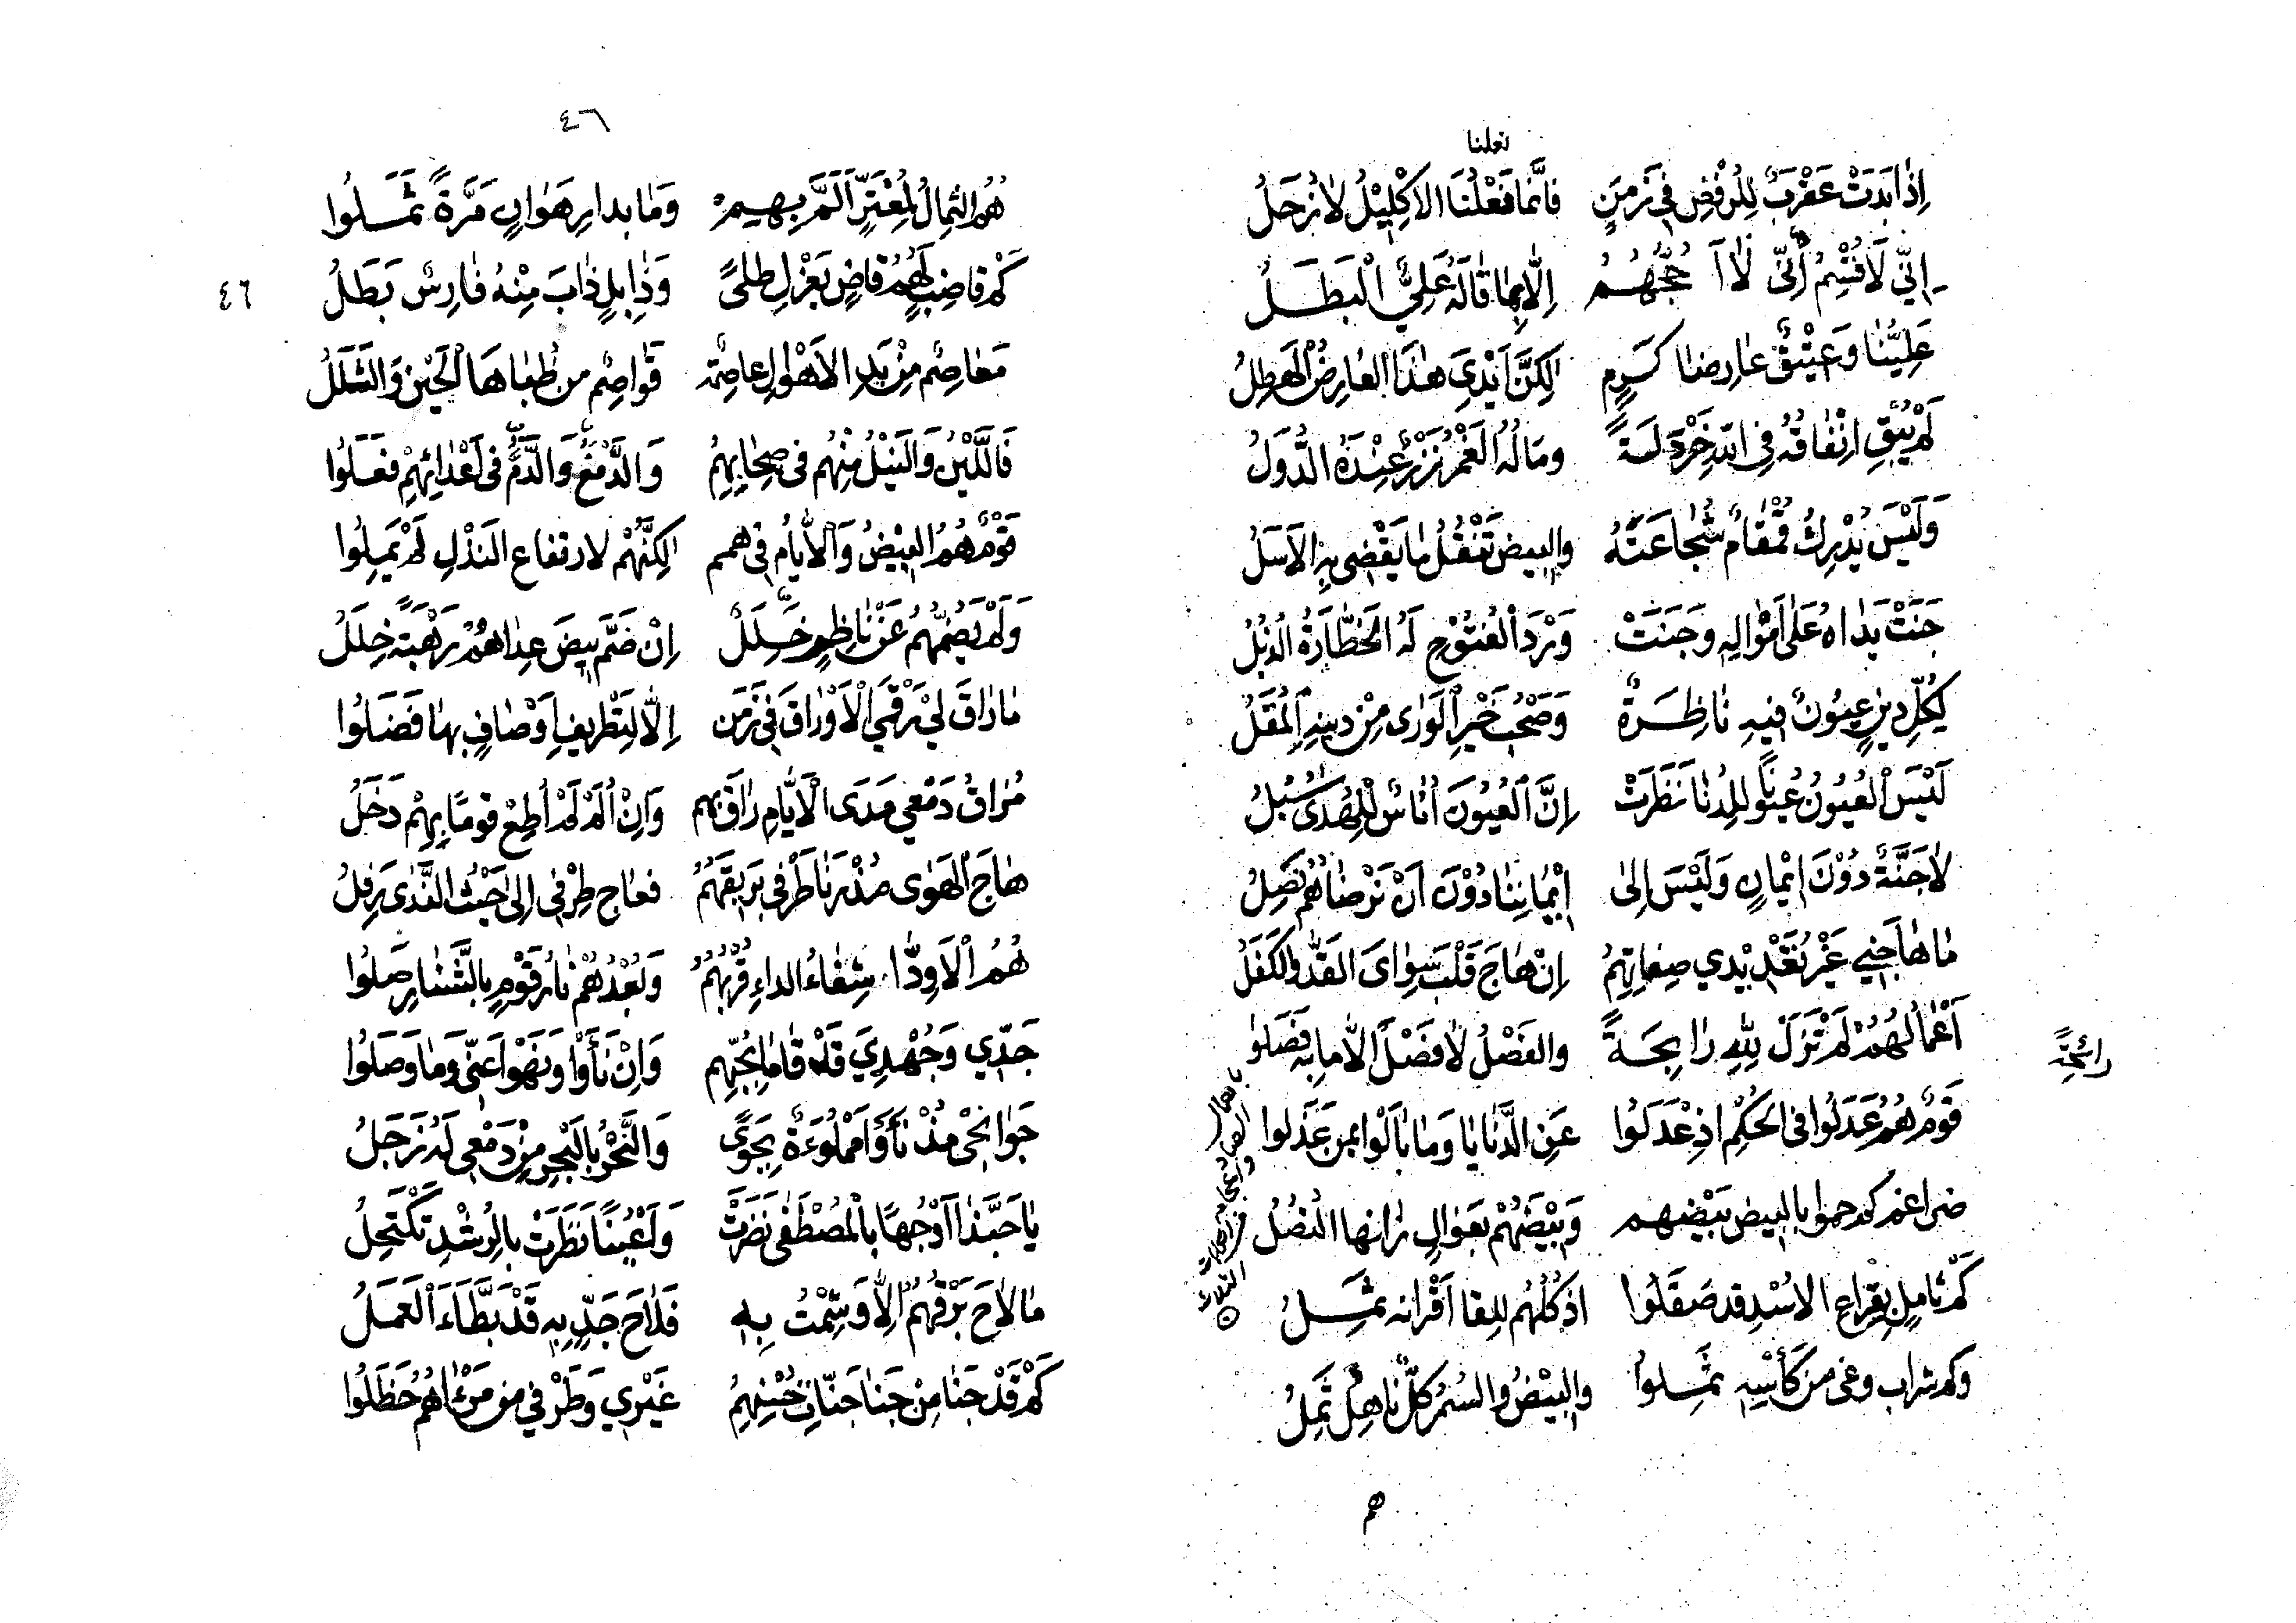 نعلنا
إِذَا بَدَتْ عَقْرَبٌ لِلرَّفْضِ فِي زَمَنٍ فَإِنَّمَا فَعْلُنَا الْإِكْلِيْلُ لَا زُحَلُ
إِنِّي لَأُقْسِمُ أَنِّي لَا أُحِبُّهُمُ إِلَّا بِمَا قَالَهُ عَلِيُّ الْبَطَلُ
عَلِيُّنَا وَعَتِيْقٌ عَارِضَا كَرَمٍ لَكِنَّ أَيْدِيَ هَذَا الْعَارِضُ الْهَطِلُ
لَمْ يُبْقِ إِنْفَاقُهُ فِي اللهِ خَرْدَلَةً وَمَالُهُ الْغَمْرُ نَزْرٌ عِنْدَهُ الدُّوَلُ
وَلَيْسَ يُدْرِكُ قَمْقَامٌ شُجَاعَتَهُ والبيض تَنْقُلُ مَا يَقْضِي بِهِ الْأَسَلُ
جَنَتْ يَدَاهُ عَلَى أَمْوَالِهِ وَجَنَتْ وَرْدَ الْفُتُوْحِ لَهُ الْخَطَّارَةُ الذُّبُلُ
لِكُلِّ دِيْنٍ عُيُونٌ فِيهِ نَاظِرَةٌ وَصَحْبُ خَيْرِ الْوَرَى مِنْ دِينِهِ الْمُقَلُ
لَيْسَ الْعُيُونُ عُيُنًا لِلدُّنَا نَظَرَتْ إِنَّ الْعُيُونَ أُنَاسٌ لِلْهُدَى سُبُلُ
لَا جَنَّةٌ دُوْنَ إِيْمَانٍ وَلَيْسَ إِلَى إِيْمَانِنَا دُوْنَ أَنْ نَرْضَاهُمُ نَصِلُ
مَا هَاجَنِي غَيْرُ نَقْدٍ يُبْدِي صِفَاتِهِمُ إِنْ هَاجَ قَلْبَ سِوَايَ الْقَدُّ وَالْكَفَلُ
أَعْمَالُهُمُ لَمْ تَزَلْ لِلّٰهِ رَابِحَةً وَالْفَضْلُ لَا فَضْلَ إِلَّا مَا بِهِ فَضَلُوا
رَائِحَةً
قَوْمٌ هُمُ عَدَلُوا فِي الْحُكْمِ إِذْ عَدَلُوا عَنِ الدَّنَايَا وَمَا بَالَوْا بِمَنْ عَذَلُوا
ضراغم كم حموا بالبيض بَيْضَهم وَبَيْضَهُمْ بعَوَالٍ زَانَهَا النُّصُلُ
كَمْ ثَامِلٍ بِقِرَاعِ الْأُسْدِ قد صَقَلُوا إذ كُلُّهُم للقا أَقْرَانِهِ ثَمِلُ
وكم شراب وغى من كَأْسِهِ ثَمِلُوا والبِيْضُ والسُّمْرُ كُلٌّ نَاهِلٌ ثَمِلُ
هم
٤٦
هُمُ الثِّمَالُ لِمُعْتَرٍّ أَلَمَّ بِهِمْ وَمَا بِدَارِ هَوَانٍ مَرَّةً ثَمَلُوا
كَمْ قَاضِبٍ لَهُمُ قَاضٍ بِعَزْلِ طُلًى وَذَابِلٍ ذَابَ مِنْهُ فَارِسٌ بَطَلُ
٤٦
مَعَاصِمٌ مِنْ يَدِ الْأَهْوَالِ عَاصِمَةٌ قَوَاصِمٌ من ظُبَاهَا الْحَيْنُ وَالشَّلَلُ
فَاللِّيْنُ وَالنَّيْلُ مِنْهُم فِي صِحَابِهِمُ وَالدَّمْعُ وَالدَّمُّ فِي أَعْدَائِهِمْ فَعَلُوا
قَوْمٌ هُمُ الْبِيْضُ وَالْأَيَّامُ فِي همم لَكِنَّهُمْ لارتفاع النَّذْلِ لَمْ يَمِلُوا
وَلَمْ يَضُمَّهُمُ عَنْ نَاظِرٍ خِلَلٌ إِنْ ضَمَّ بِيضَ عِدَاهُمْ رَهْبَةً خِلَلُ
مَا رَاقَ لِي رَقْيُ الْأَوْرَاقِ فِي زَمَنٍ إِلَّا لِتَطْرِيفِ أَوْصَافٍ بِهَا فَضَلُوا
مُرَاقُ دَمْعِي مَدَى الْأَيَّامِ رَاقَ بِهِم وَإِنْ أُلَمْ لَمْ أُطِعْ قَوْمًا بِهِمْ دَخَلُ
هَاجَ الْهَوَى مُذْ رَنَا طَرْفِي بَرِيقَهُمُ فَعَاجَ طِرْفِي إِلَى حَيْثُ النَّدَى رَفِلُ
هُمُ الْأَوِدَّا، شِفَاءُ الداءِ قُرْبُهُمُ وَبُعْدُهُمْ نَارُ قَوْمٍ بِالشَّنَارِ صَلُوا
جَدِّي وَجُهْدِيَ قَدْ قَامَا بِحُبِّهِمِ وَإِنْ نَأَوْا وَنَهَوْا عَنِّي وَمَا وَصَلُوا
جَوَانِحِي مُذْ نَأَوْا مَمْلُوْءَةٌ بِجَوًى وَالنَّحْرُ بِالْبَحْرِ مِنْ دَمْعِي لَهُ زَجَلُ
يَا حَبَّذَا أَوْجُهًا بِالْمُصْطَفَى نَضَرَتْ وَأَعْيُنًا نَظَرَتْ بِالرُّشْدِ تَكْتَحِلُ
مَا لَاحَ بَرْقُهُمُ إِلَّا وَشِمْتُ بِهِ فَلَاحَ جَدٍّ بِهِ قَدْ بَطَّأَ الْعَمَلُ
كَمْ قَدْ جَنَا مِنْ جَنَا جَنَّاتِ حُسْنِهِمُ غَيْرِي وَطَرْفِي من مَرْآهُمُ حَظَلُوا